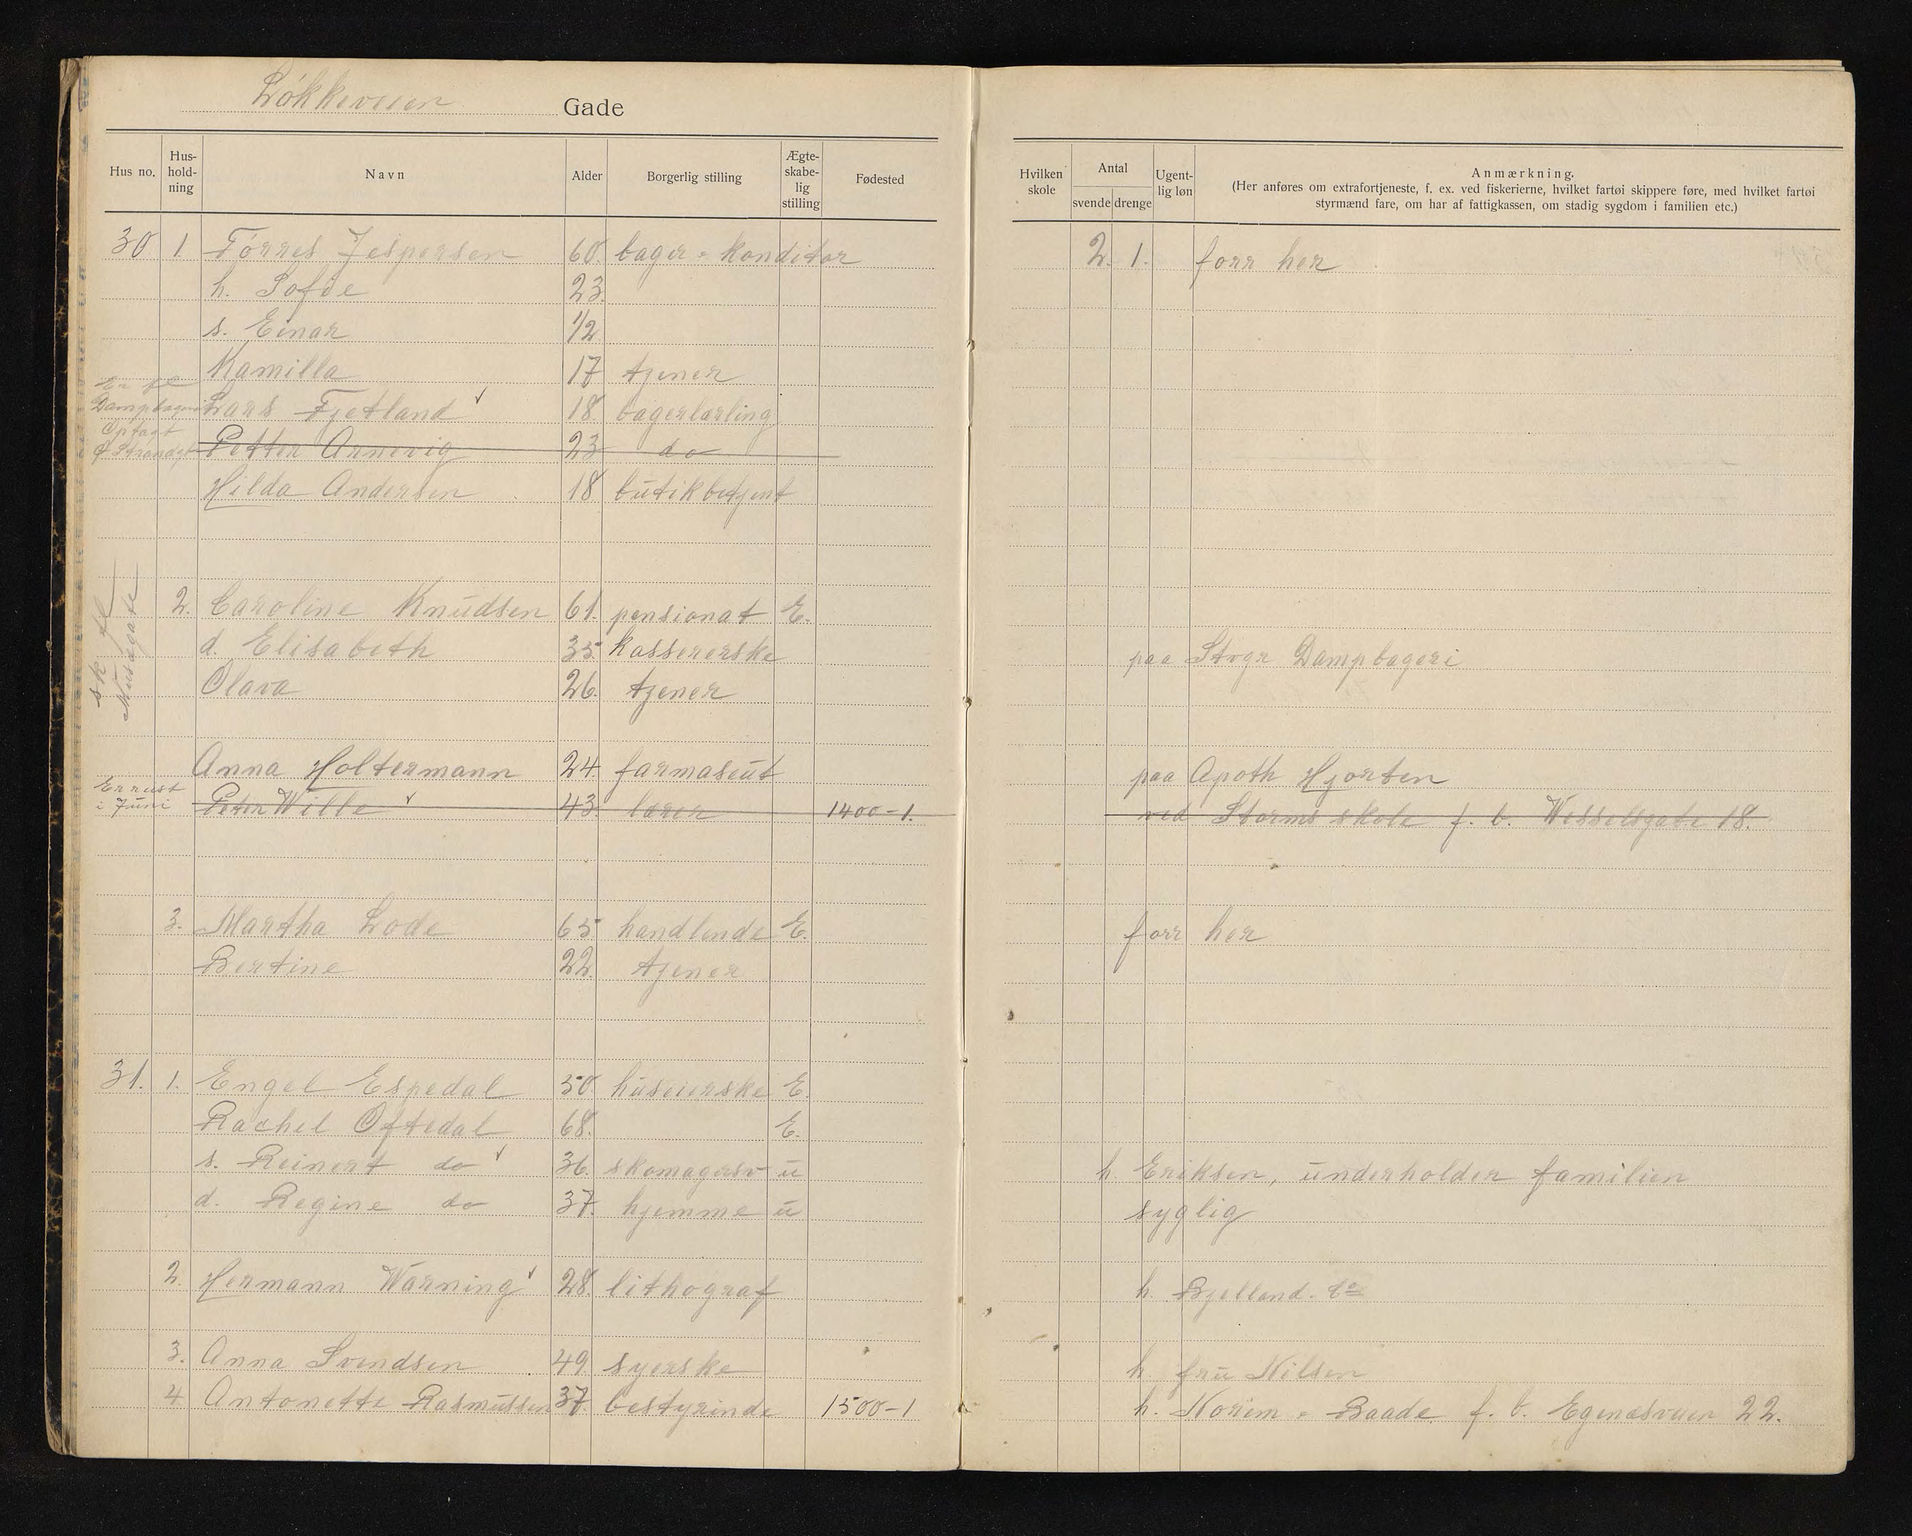 Løkkeveien Gade
Hus no. Hus-hold-ning Navn Alder Borgerlig stilling Ægte-skabe-lig stilling Fødested Hvilken skole Antal svende drenge Ugent-lig løn Anmærkning.
(Her anføres om extrafortjeneste, f. ex. ved fiskerierne, hvilket fartøi skippere føre, med hvilket fartøi
styrmænd fare, om har af fattigkassen, om stadig sygdom i familien etc.)
30 1. Tørres Jespersen 60. bager = konditor 2. 1. forr her
h. Sofie 23.
s. Einar 1/2
Kamilla 17 tjener
Lars Fjetland 18. bagerlærling
Petter Annevig 23 do
Hilda Andersen 18 butikbetjent
sk fl
2. Caroline Knudsen 61. pensionat E.
d. Elisabeth 35. kassererske paa Stvgr Dampbageri
Olava 26. tjener
Anna Holtermann 24. farmaseut paa Apoth Hjorten
Er reist
i Juni Peter Wille 43. lærer 1400-1. ved Storms skole f. b. Wesselsgate 18.
3. Martha Lode 65 handlende E. forr her
Bertine 22. tjener
31. 1. Engel Espedal 50. huseierske E.
Rachel Oftedal 68. E.
s. Reinert do 36. skomagersv u h. Eriksen, underholder familien
d. Regine do 37. hjemme u syglig
2. Hermann Warning 28. lithograf h. Bjelland. Co
3. Anna Svendsen 49 syerske h. fru Nilsen
4 Antonette Rasmussen 37. bestyrinde 1500-1 h. Norem = Baade f. b. Egenæsveien 22.